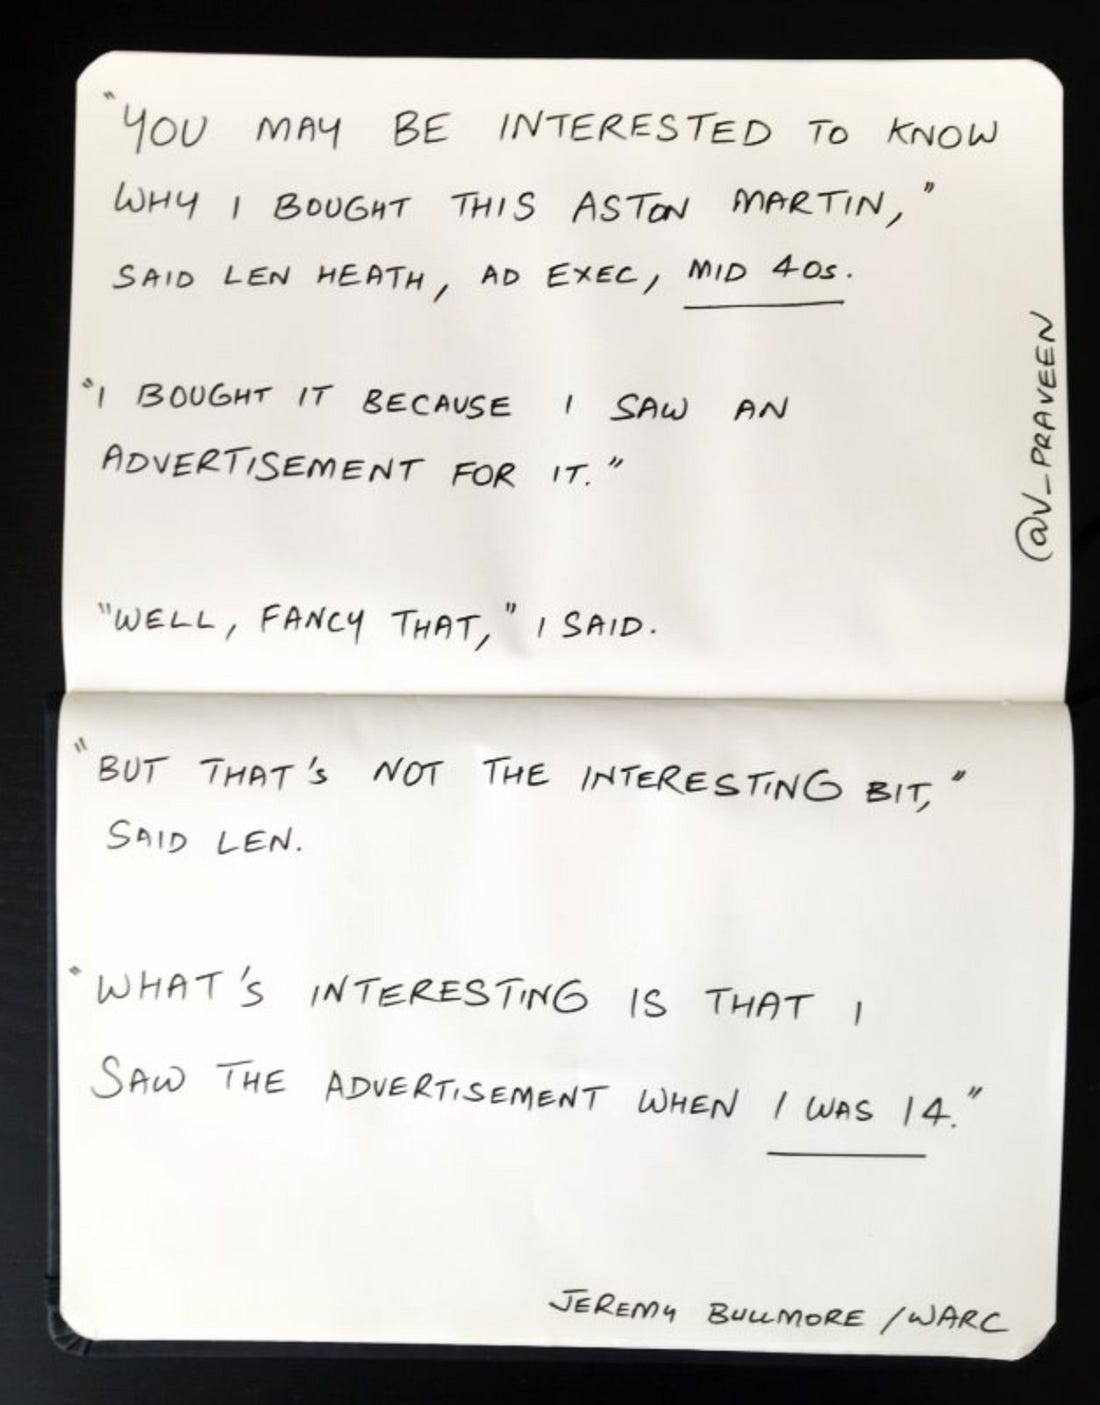 "YOU MAY BE INTERESTED TO KNOW
WHY I BOUGHT THIS ASTON MARTIN,"
SAID LEN HEATH, AD EXEC, MID 40s.
"I BOUGHT IT BECAUSE I SAW AN
ADVERTISEMENT FOR IT."
"WELL, FANCY THAT," I SAID.
@V_PRAVEEN
"BUT THAT'S NOT THE INTERESTING BIT,"
SAID LEN.
"WHAT'S INTERESTING IS THAT I
SAW THE ADVERTISEMENT WHEN I WAS 14."
JEREMY BULLMORE / WARC